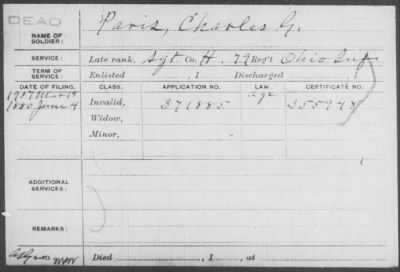 DEAD
NAME OF SOLDIER: Paris, Charles G.
SERVICE: Late rank, Sgt Co. H. 79 Reg't Ohio Inf
TERM OF SERVICE: Enlisted , 1 Discharged , 1
DATE OF FILING. CLASS. APPLICATION NO. LAW. CERTIFICATE NO.
1880 June 4 Invalid, 371885 355948
Widow,
Minor,
ADDITIONAL SERVICES:
REMARKS:
Died , 1 , at